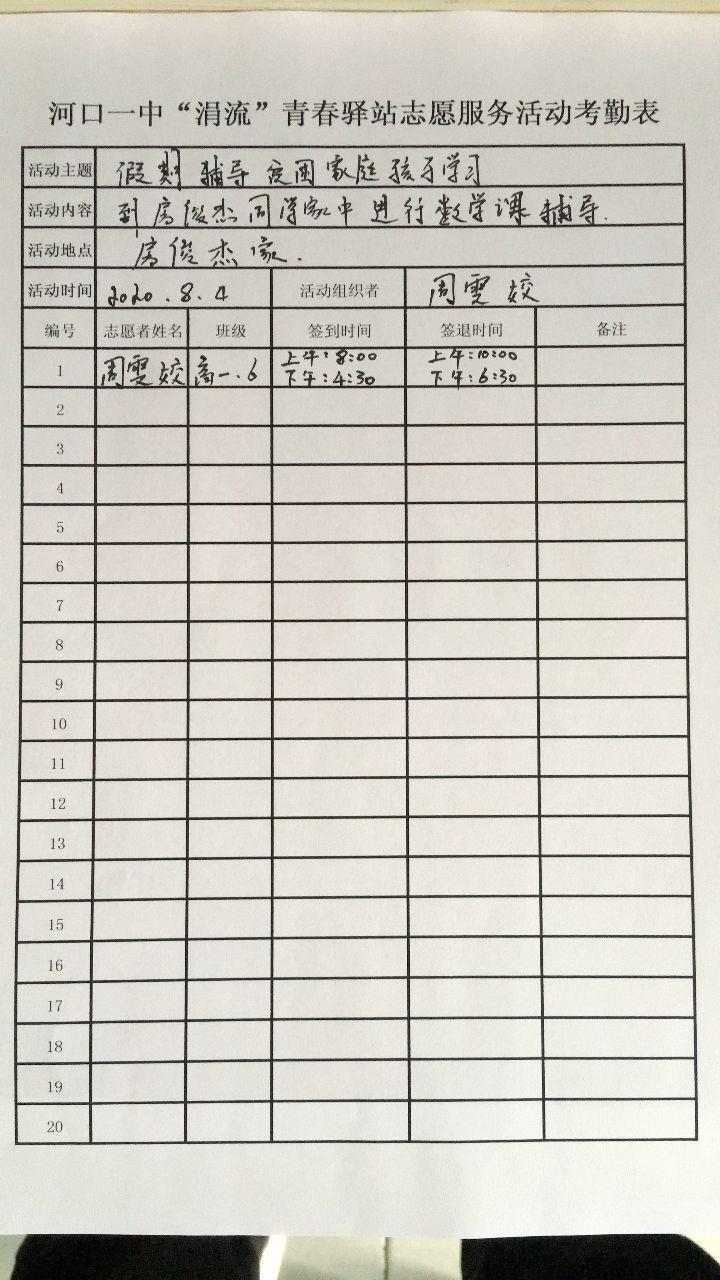 河口一中“涓流”青春驿站志愿服务活动考勤表
活动主题 假期辅导贫困家庭孩子学习
活动内容 到房俊杰同学家中进行数学课辅导.
活动地点 房俊杰家.
活动时间 2020.8.4 活动组织者 周雯姣
编号 志愿者姓名 班级 签到时间 签退时间 备注
1 周雯姣 高一.6 上午:8:00 下午:4:30 上午:10:00 下午:6:30
2
3
4
5
6
7
8
9
10
11
12
13
14
15
16
17
18
19
20